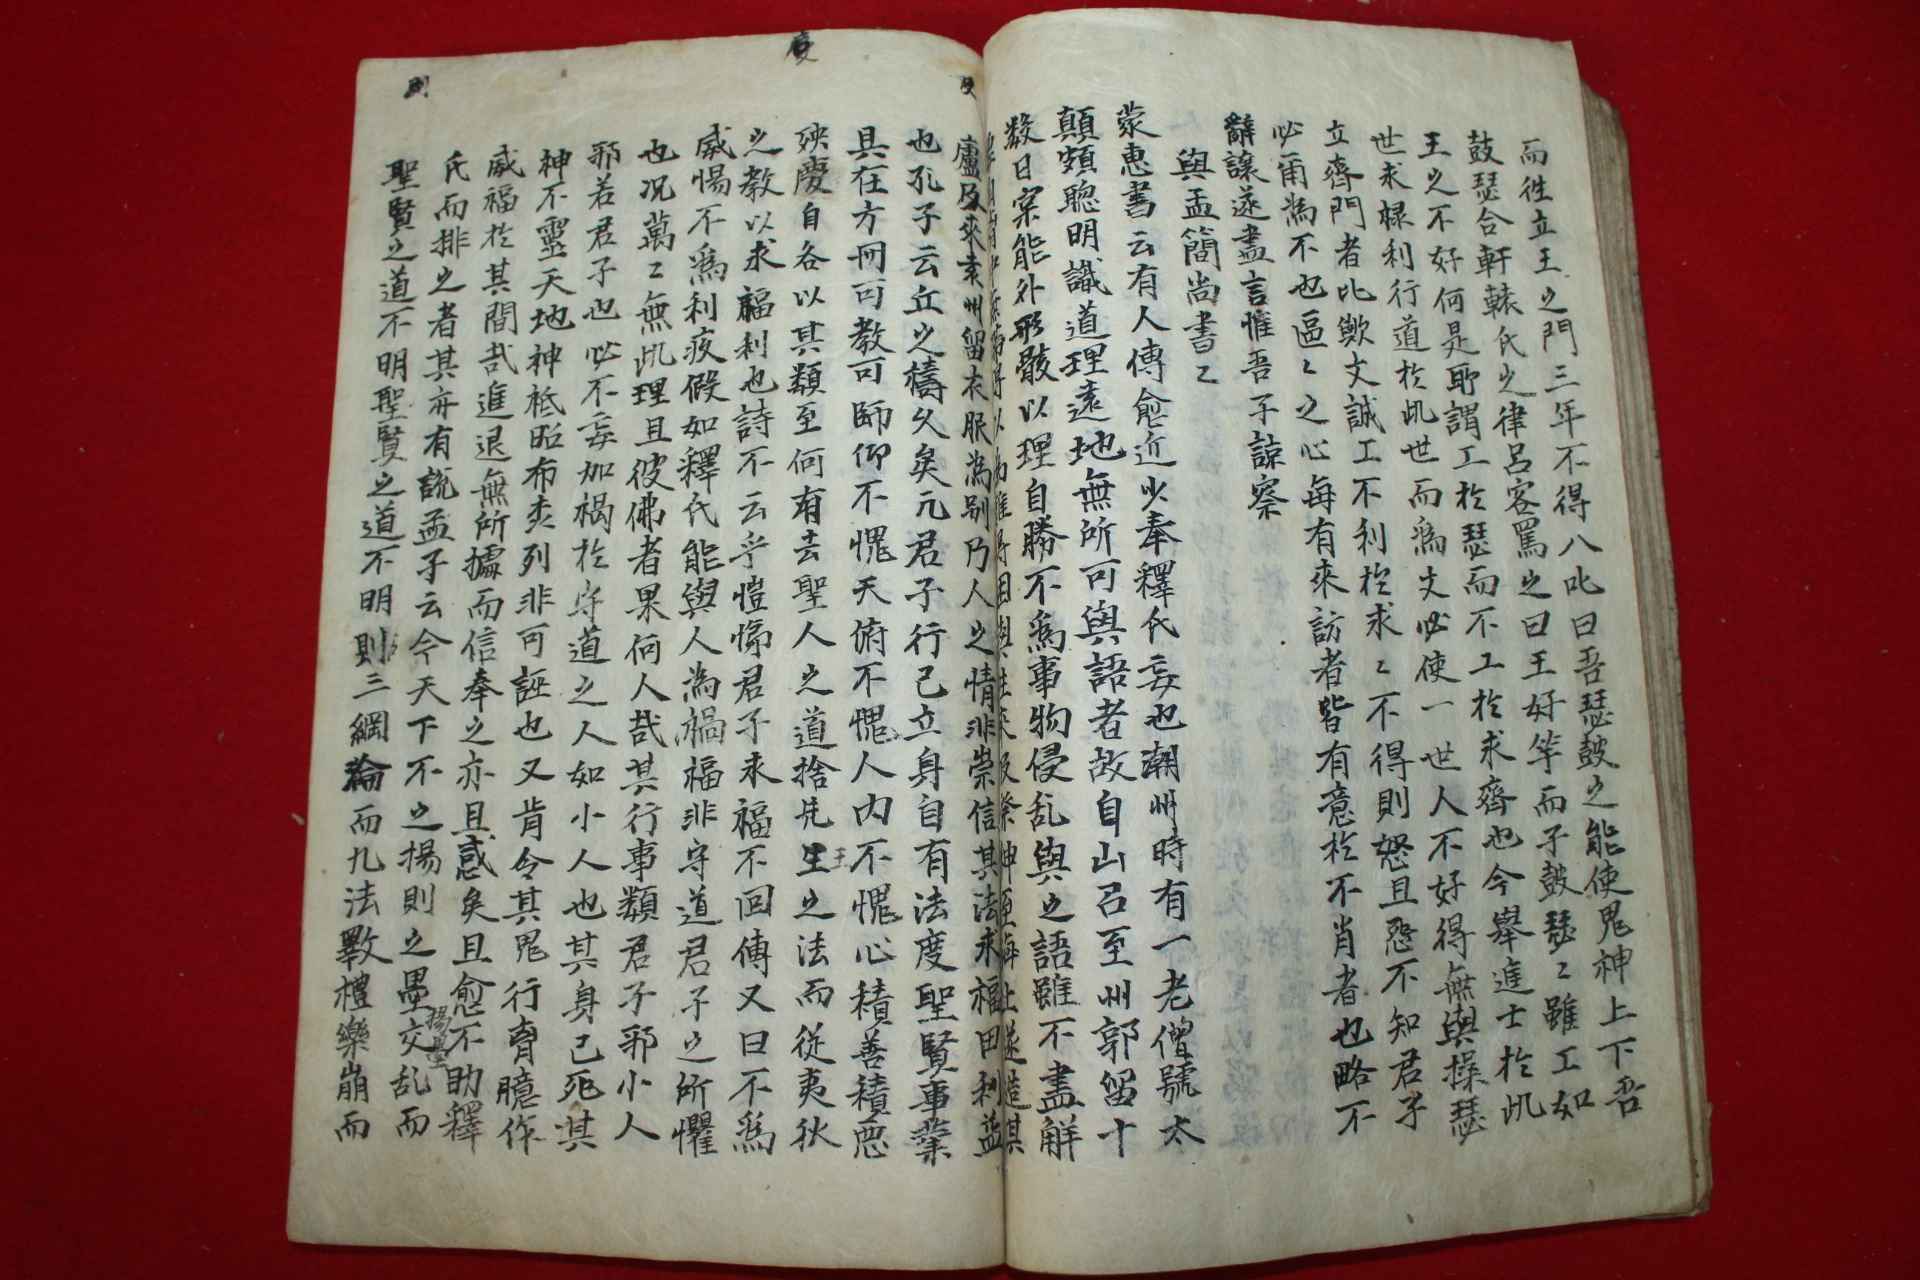 而徃立王之門三年不得八叱曰吾瑟皷之能使鬼神上下吾
鼓瑟合軒轅氏之律呂客罵之曰王好竽而子皷瑟〻雖工如
王之不好何是耶謂工於瑟而不工於求齊也今舉進士於此
世求祿利行道於此世而爲文必使一世人不好得無與操瑟
立齊門者比歟文誠工不利於求〻不得則怒且怨不知君子
必爾為不也區〻之心每有來訪者皆有意於不肖者也略不
辭讓遂盡言惟吾子諒察
與孟簡尚書〻
蒙惠書云有人傳愈近少奉釋氏妄也潮州時有一老僧號太
顛頗聰明識道理遠地無所可與語者故自山召至州郭留十
数日宲能外形骸以理自勝不爲事物侵乱與之語雖不盡解
以為難得因與往來及祭神至海上遂造其
廬及來袁州留衣服為別乃人之情非崇信其法求福田利益
也孔子云丘之禱久矣元君子行己立身自有法度聖賢事業
具在方冊可教可師仰不愧天俯不愧人内不愧心積善積惡
殃慶自各以其類至何有去聖人之道捨先王之法而従夷狄
之教以求福利也詩不云乎愷悌君子求福不回傳又曰不爲
威惕不爲利疚假如釋氏能與人為禍福非守道君子之所懼
也况萬〻無此理且彼佛者果何人哉其行事類君子邪小人
邪若君子也必不妄加禍於守道之人如小人也其身己死其
神不靈天地神祗昭布森列非可誣也又肯令其鬼行胷臆作
威福於其間哉進退無所據而信奉之亦且惑矣且愈不助釋
氏而排之者其亦有說孟子云今天下不之揚則之墨揚墨交乱而
聖賢之道不明聖賢之道不明則三綱淪而九法斁禮樂崩而
慶
則